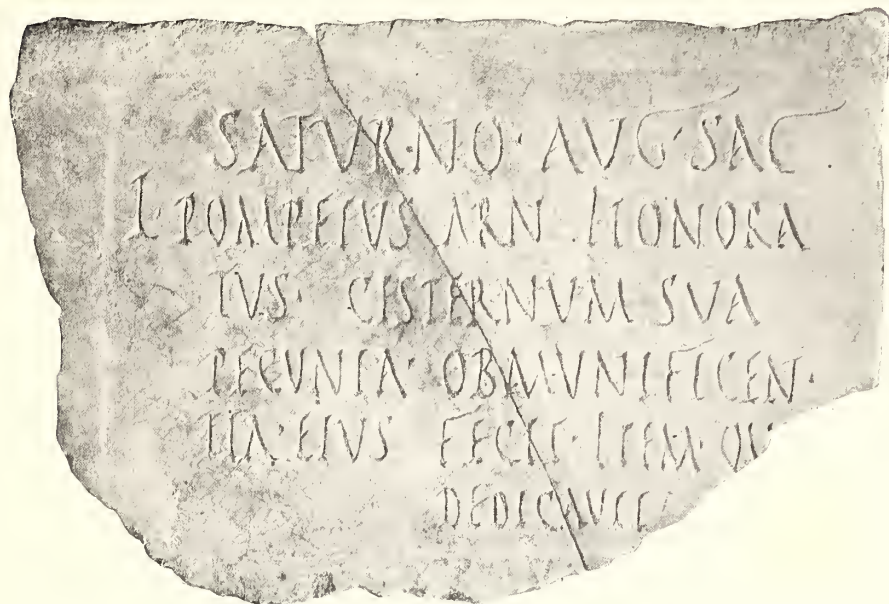 SATURNO · AUG · SAC
L · POMPEIVS ARN · HONORA
TVS · CISTERNVM SVA
PECVNIA · OB MVNIFICEN ·
TIA · EIVS FECIT · ITEM · QV
DEDICAVIT